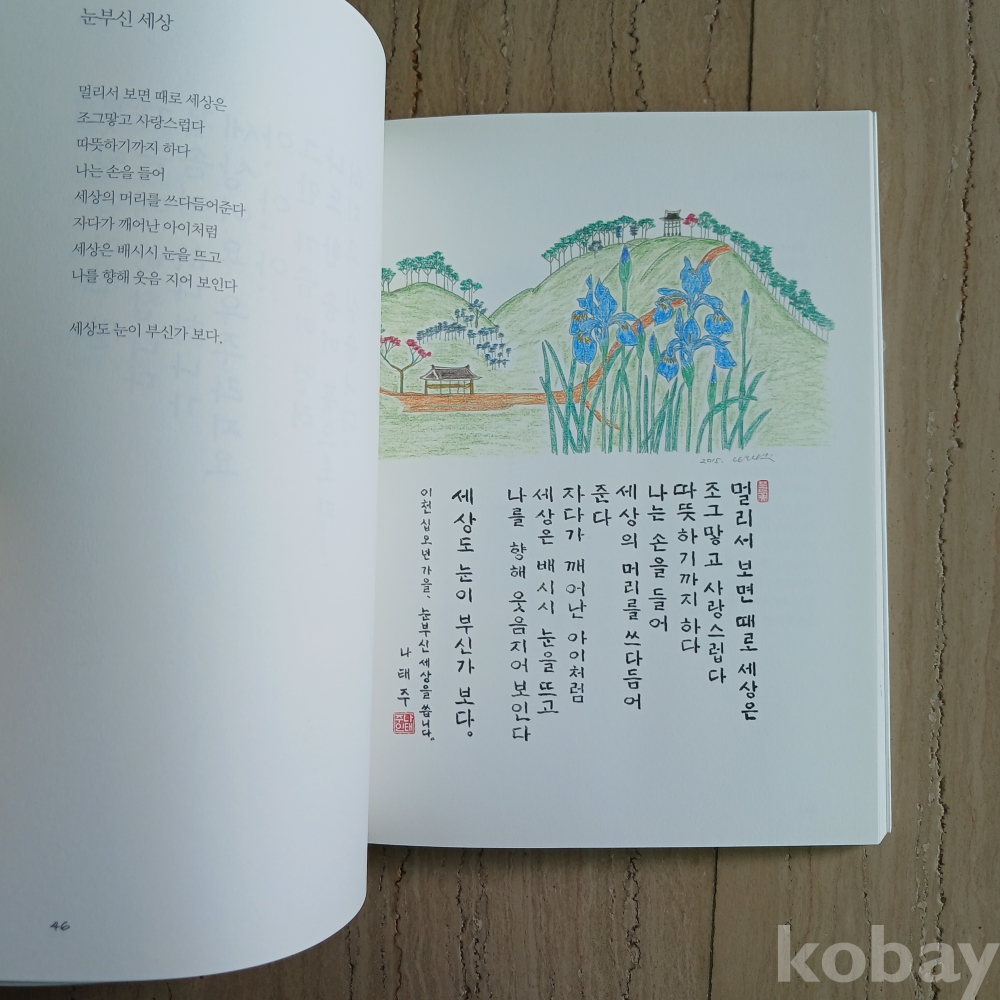 눈부신 세상
멀리서 보면 때로 세상은
조그맣고 사랑스럽다
따뜻하기까지 하다
나는 손을 들어
세상의 머리를 쓰다듬어준다
자다가 깨어난 아이처럼
세상은 배시시 눈을 뜨고
나를 향해 웃음 지어 보인다
세상도 눈이 부신가 보다.
46
2015.
멀리서 보면 때로 세상은
조그맣고 사랑스럽다
따뜻하기까지 하다
나는 손을 들어
세상의 머리를 쓰다듬어
준다
자다가 깨어난 아이처럼
세상은 배시시 눈을 뜨고
나를 향해 웃음지어 보인다
세상도 눈이 부신가 보다.
이천십오년 가을, 눈부신 세상을 씁니다.
나태주
kobay